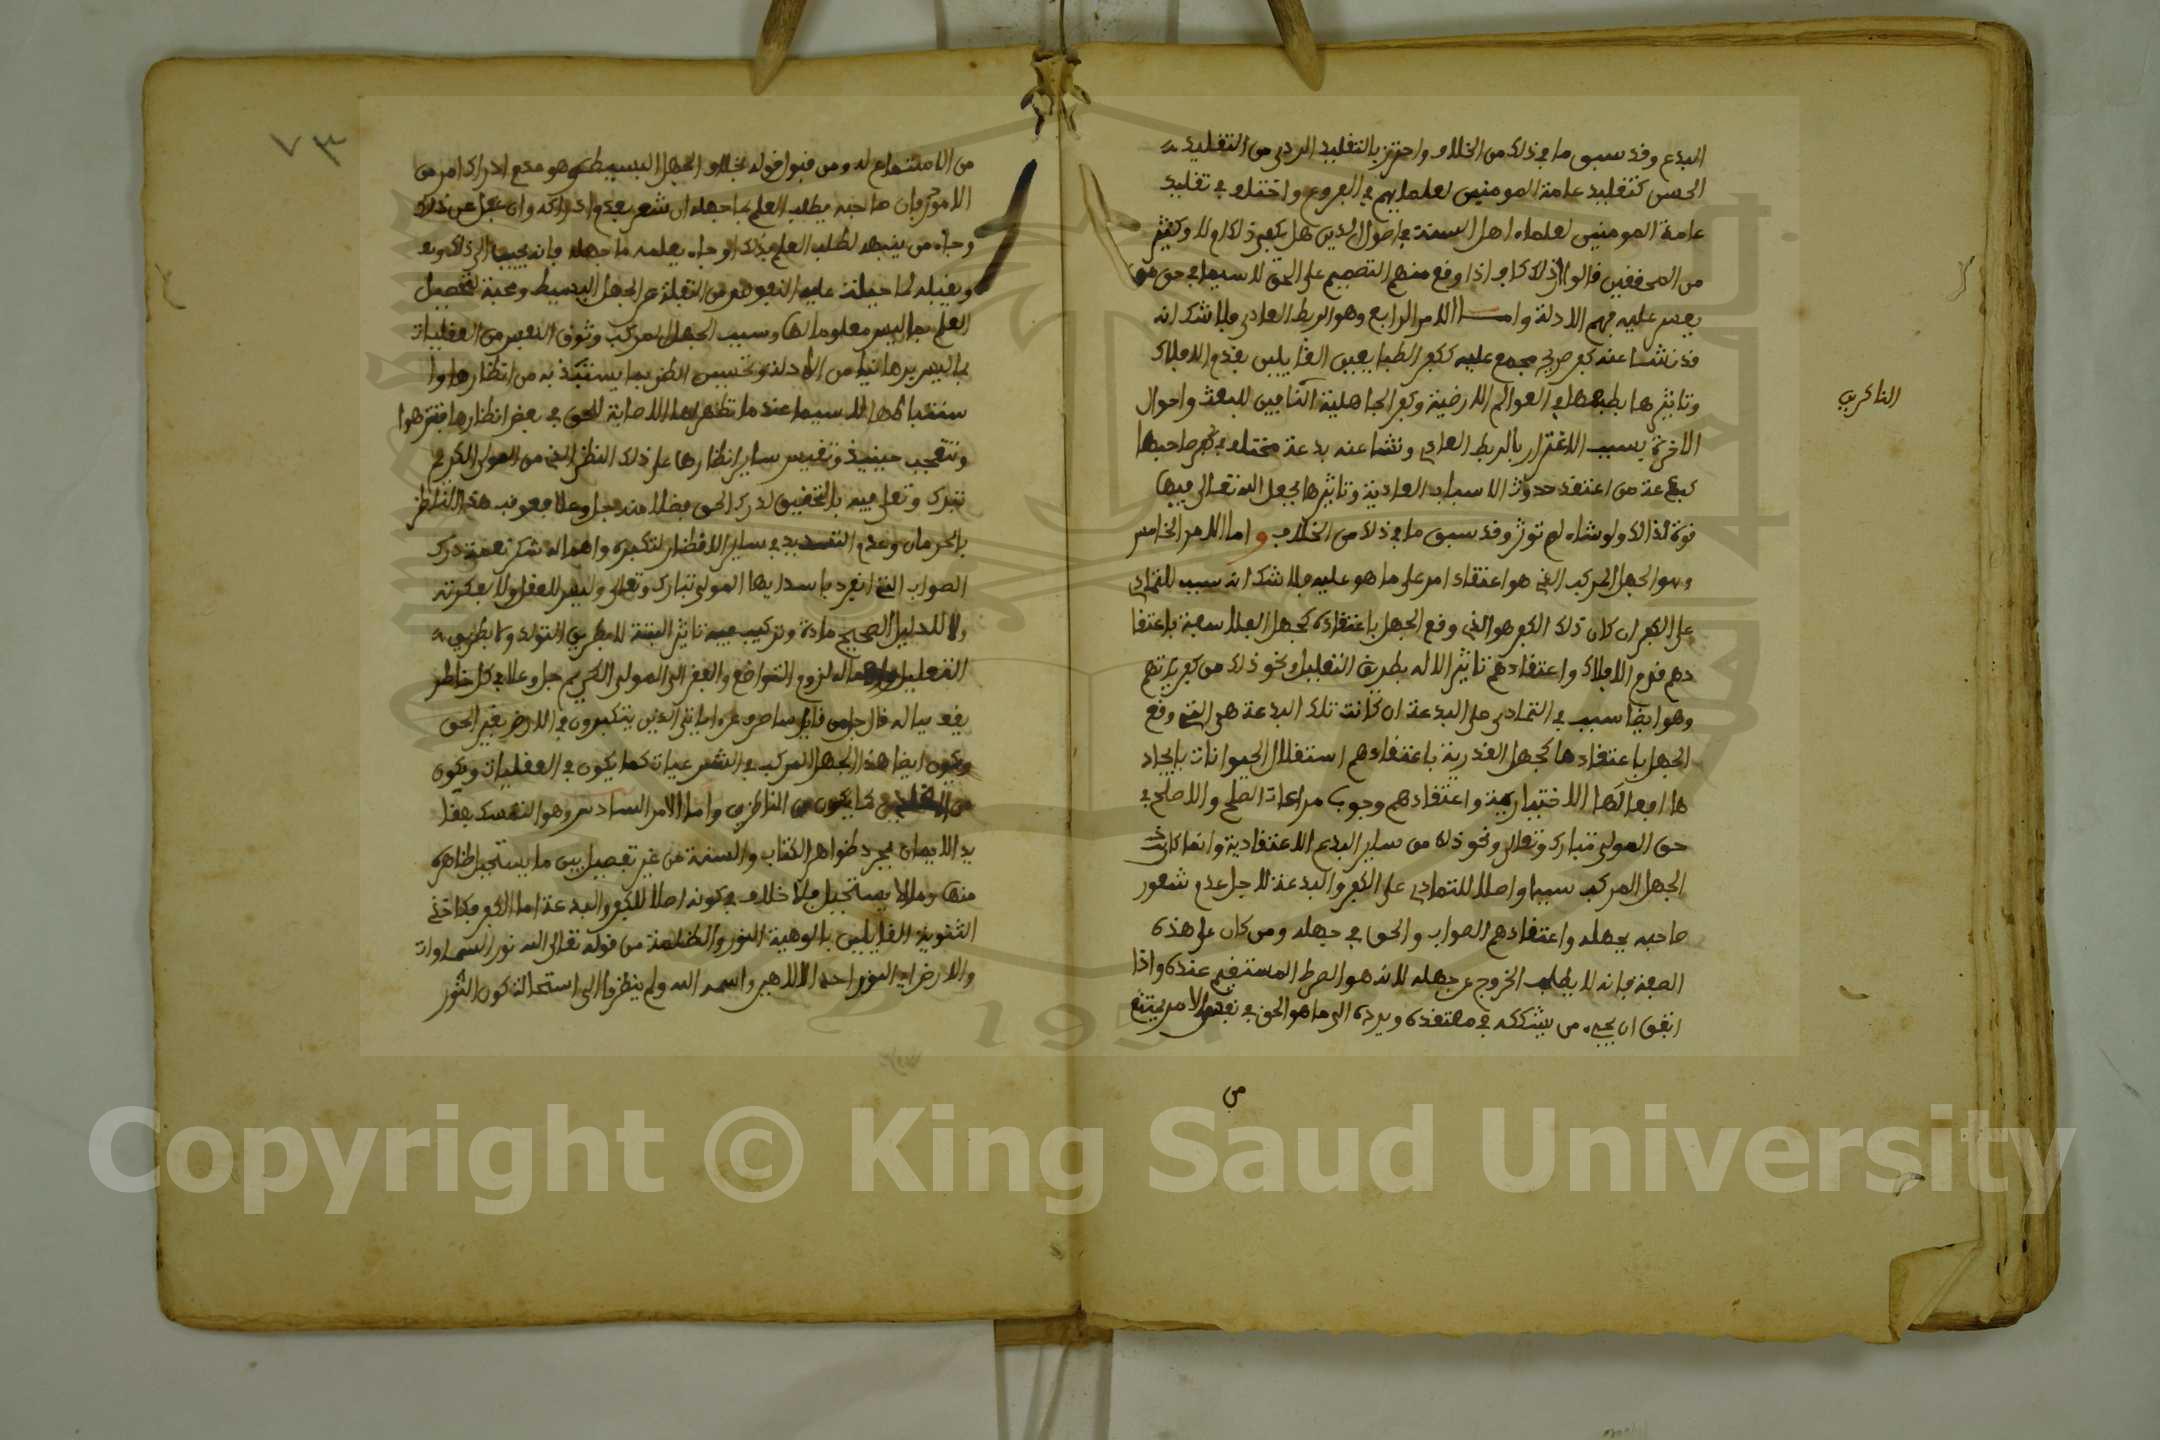 البدع وقد سبق ما في ذلك من الخلاف واحترز بالتقليد الردي من التقليد
الحسن كتقليد عامة المومنين لعلمايهم في الفروع واختلف في تقليد
عامة المومنين لعلماء اهل السنة في اصول الدين هل يكفي ذلك ام لا وكثير
من المحققين قالوا ان ذلك كاف اذا وقع منهم التصميم على الحق لا سيما في حق من
يعسر عليه فهم الادلة واما الامر الرابع وهو الربط العادي فلا شك انه
قد نشا عنه كفر صريح مجمع عليه ككفر الطبايعيين القايلين بقدم الافلاك
وتاثيرها بطبعها في العوالم الارضية وكفر الجاهلية النافين للبعث واحوال
الناكرين
الاخرة بسبب الاغترار بالربط العادي ونشا عنه بدعة مختلف في كفر صاحبها
كبدعة من اعتقد حدوث الاسباب العادية وتاثيرها بجعل الله تعالى فيها
قوة لذلك ولو شاء لم توثر وقد سبق ما في ذلك من الخلاف واما الامر الخامس
وهو الجهل المركب الذي هو اعتقاد امر على ما هو عليه فلا شك انه سبب للتمادي
على الكفر ان كان ذلك الكفر هو الذي وقع الجهل باعتقاده كجهل الفلاسفة باعتقا
دهم قدم الافلاك واعتقادهم تاثير الاله بطريق التعليل ونحو ذلك من كفرياتهم
وهو ايضا سبب في التمادي على البدعة ان كانت تلك البدعة هي التي وقع
الجهل باعتقادها كجهل القدرية باعتقادهم استقلال الحيوانات بايجاد
ها افعالها الاختيارية واعتقادهم وجوب مراعات الصلح والاصلح في
حق المولى تبارك وتعالى ونحو ذلك من ساير البدع الاعتقادية وانما كانت
الجهل المركب سببا واصلا للتمادي على الكفر والبدعة لاجل عدم شعور
صاحبه بجهله واعتقادهم الصواب والحق في جهله ومن كان على هذه
الصفة فانه لا يطلب الخروج عن جهله لانه هو الصرط المستقيم عنده واذا
اتفق ان يجيء من يشككه في معتقده ويرده الى ما هو الحق في نفس الامر يمتنع
من
٧٣
من الاستماع له ومن قبول قوله بخلاف الجهل البسيط هو عدم ادراك امر من
الامور فان صاحبه يطلب العلم بما جهله ان شعر بعدم ادراكه وان غفل عن ذلك
وجاءه من ينبهه لطلب العلم بذلك او جاء يعلمه ما جهله فانه يجيب الى ذلك
ويقبله لما جبلت عليه النفوس من النقلة عن الجهل البسيط ومحبة تحصيل
العلم بما ليس معلوما لها وسبب الجهل المركب وثوق النفس من العقليات
بما ليس برهانيا من الادلة وتحسين الظن بما يستنتج به من انظارها وا
ستنباطها لا سيما عند ما تظهر لها الاصابة للحق في بعض انظارها فتزهوا
وتتعجب حينيذ وتقيس ساير انظارها على ذلك النظر الذي من المولى الكريم
تبرك وتعلى فيه بالتحقيق لدرك الحق فضلا منه جل وعلا فعوقب هذا الناظر
بالحرمان وعدم التسديد في ساير الاقطار لتكبره واهماله شكر نعمة درك
الصواب التي انفرد باسدايها المولى تبارك وتعالى وليس للعقل ولا لفكرته
ولا للدليل الصحيح مادة وتركيب فيه تاثير البتة لا بطريق التولد ولا بطريق
التعليل واهماله لزوم التواضع والفقر الى المولى الكريم جل وعلا في كل خاطر
يقع بباله قال جل من قايل ساصرف عن اياتي الذين يتكبرون في الارض بغير الحق
ويكون ايضا هذا الجهل المركب في الشرعيات كما يكون في العقليات ويكون
من المقلدين كما يكون من الناظرين واما الامر السادس وهو التمسك بعقا
يد الايمان بمجرد ظواهر الكتاب والسنة من غير تفصيل بين ما يستحيل ظاهره
منها وما لا يستحيل فلا خلاف في كونه اصلا للكفر والبدعة اما الكفر فكاخذ
الثنوية القايلين بالوهية النور والظلمة من قوله تعالى الله نور السماوات
والارض ان النور احد الالاهين واسمه الله ولم ينظروا الى استحالة كون النور